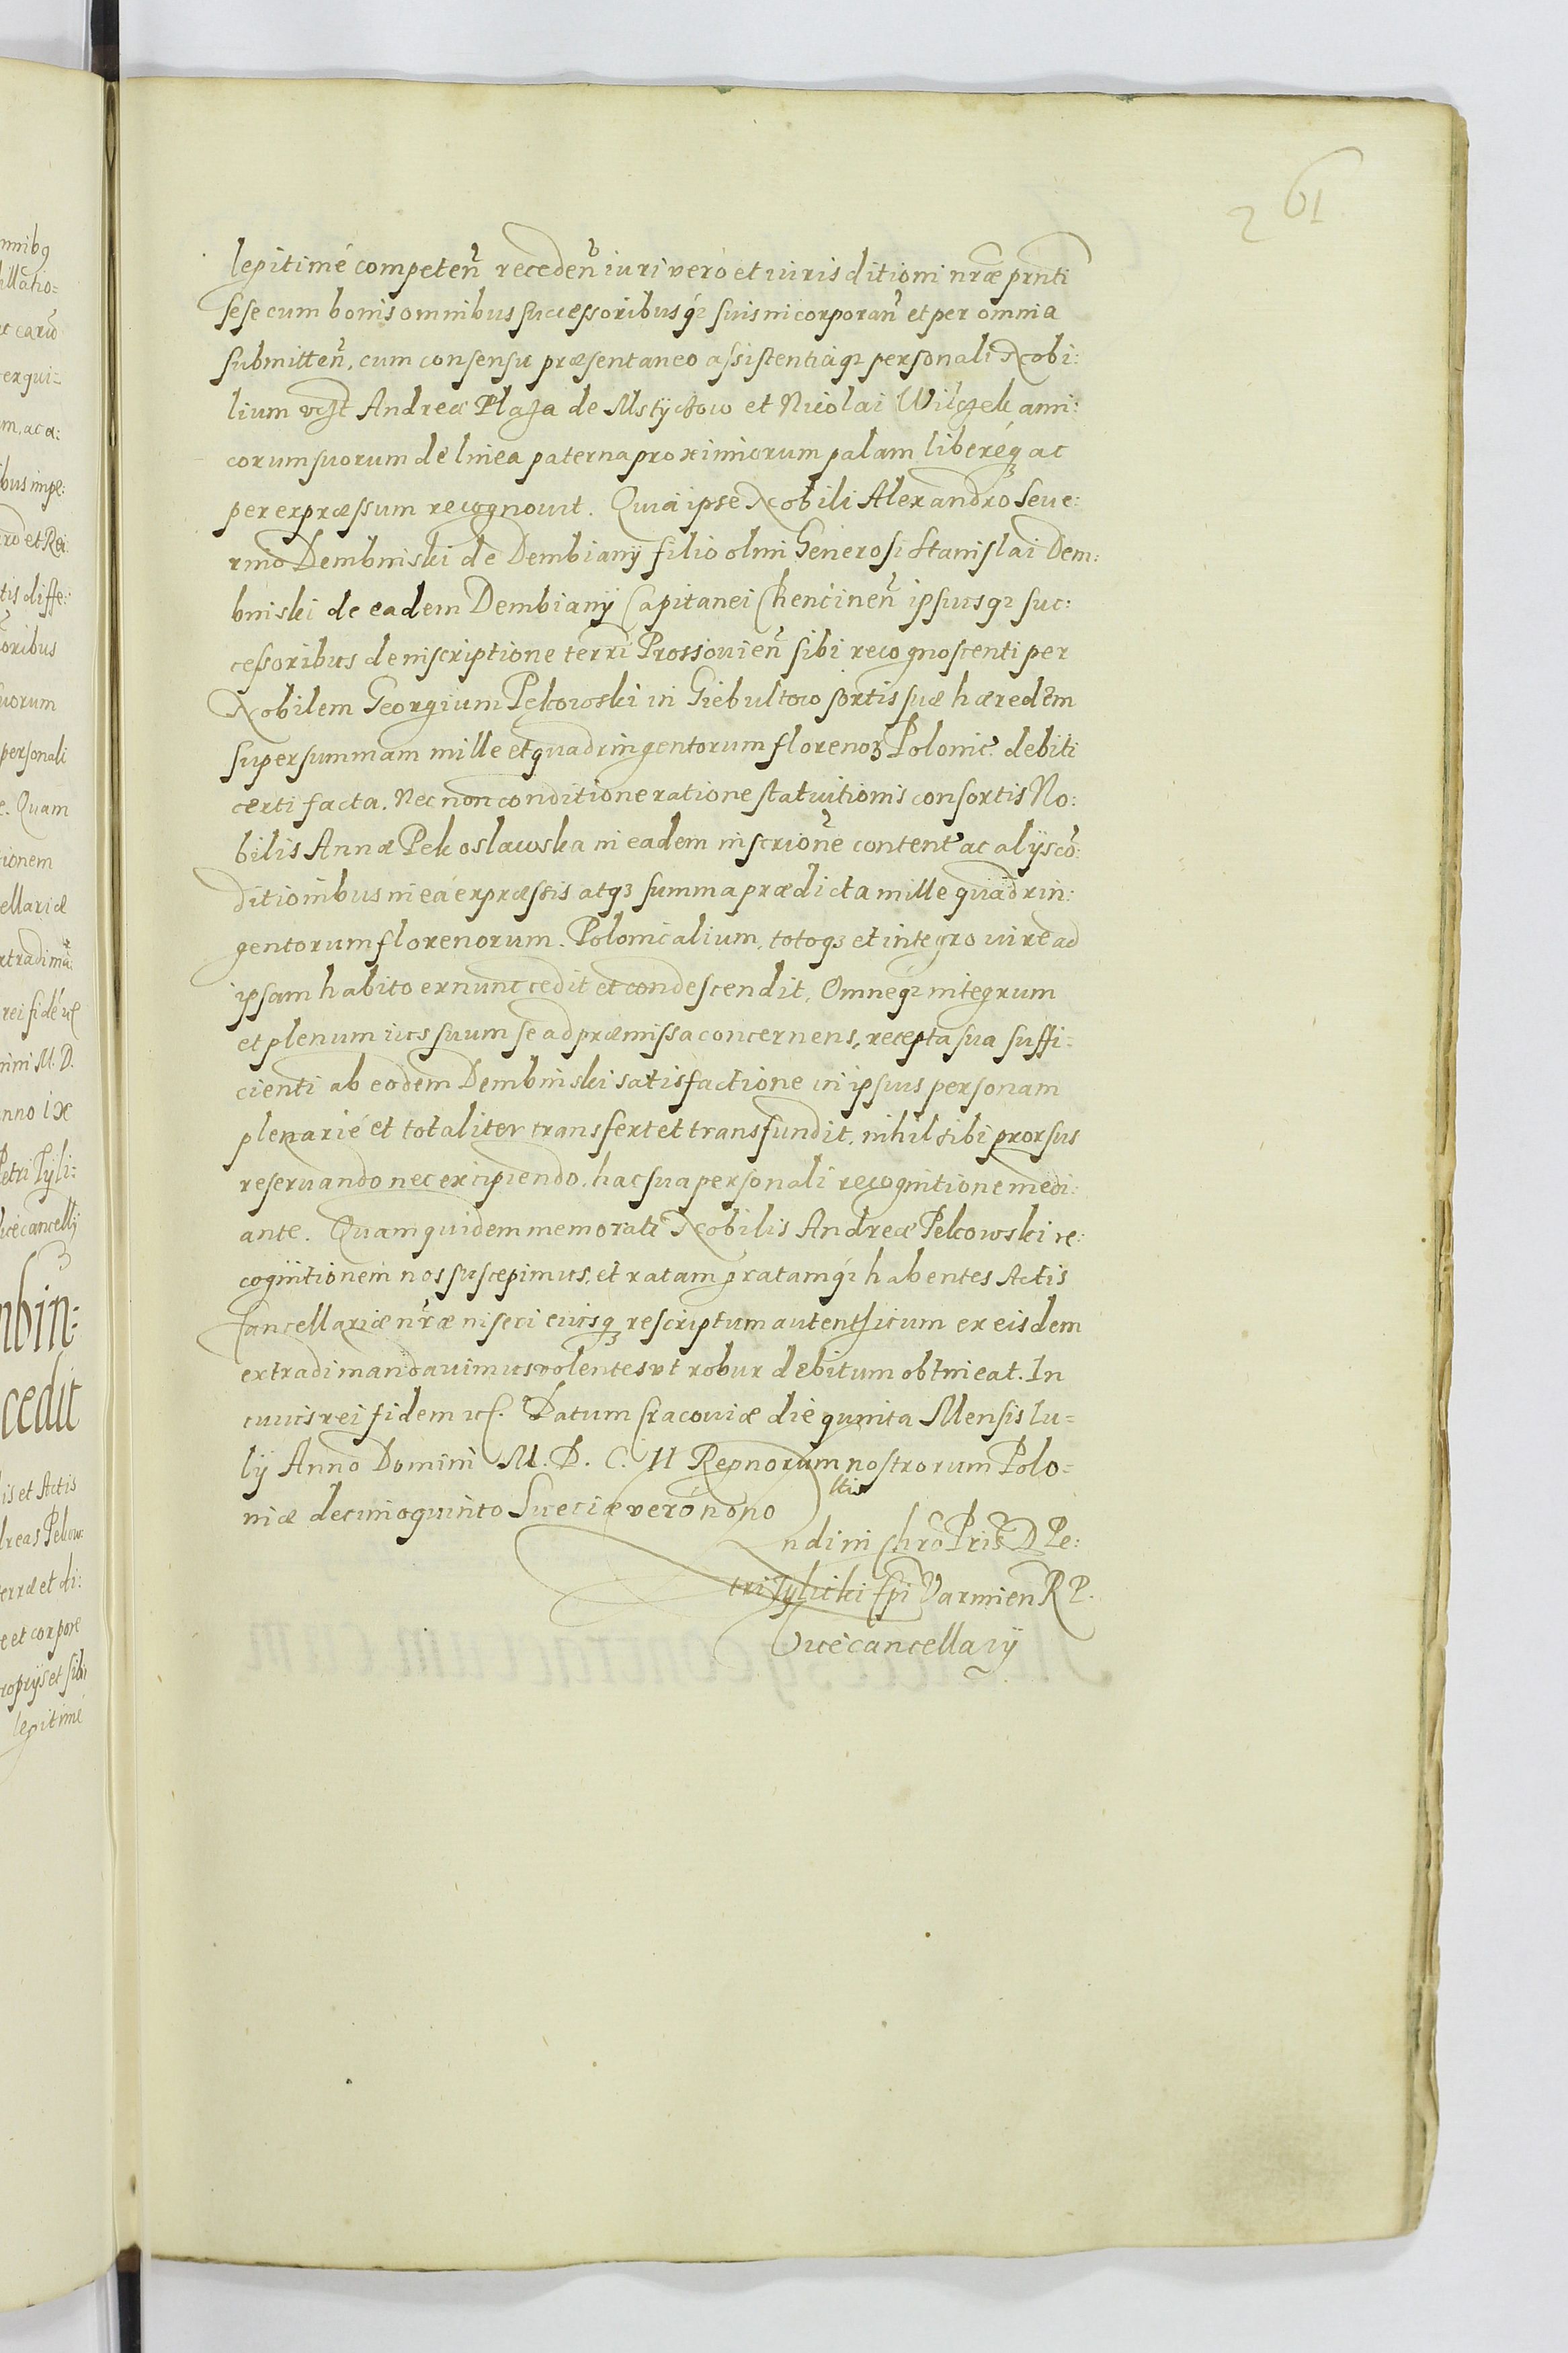 261
legitimé competen̄ receden̄ iuri vero et iurisditioni nr̃æ prn̄ti
sese cum bonis omnibus successoribusq3 suis incorporan̄ et per omnia
submitten̄, cum consensu præsentaneo assistentiaq3 personali Nobi:
lium vt̃ Andreæ Plaza de Mstyczow et Nicolai Wilczek ami:
corum suorum de linea paterna proximiorum palam liberéq3 ac
per expræssum recognouit. Quia ipse Nobili Alexandro Seue:
rino Dembinski de Dembiany filio olim Generosi Stanislai Dem:
binski de eadem Dembiany Capitanei Chencinen̄ ipsiusq3 suc:
cessoribus de inscriptione terri Prossouien̄ sibi recognoscenti per
Nobilem Georgium Pekowski in Giebultow sortis suæ hæredem
super summam mille et quadringentorum floreno3 Polonic. debiti
certi facta. Nec non conditione ratione statuitionis consortis No:
bilis Annæ Pekoslawska in eadem inscrion̄e content ac alijs cō:
ditionibus in ea expræssis atq3 summa prædicta mille quadrin:
gentorum florenorum. Polonicalium, totoq3 et integro iure ad
ipsam habito ex nunc cedit et condescendit, Omneq3 integrum
et plenum ius suum se ad præmissa concernens, recepta sua suffi:
cienti ab eodem Dembinski satisfactione in ipsius personam
plenarié et totaliter transfert et transfundit, nihil sibi prorsus
reseruando nec excipiendo, hac sua personali recognitione medi:
ante. Quam quidem memorati Nobilis Andreæ Pekowski re:
cognitionem nos suscepimus, et ratam gratamq3 habentes Actis
Cancellariæ nr̃æ inseri eiusq3 rescriptum autenthicum ex eisdem
extradi mandauimus volentes vt robur debitum obtineat. In
cuius rei fidem etc. Datum Cracouiæ die quinta Mensis Iu=
lij Anno Domini M. D. C. II Regnorum nostrorum Polo=
niæ decimoquinto Sueciæ veró nono
ndi in Chrō Pris D Pe:
tri Tylicki Epi Varmien R P.
Vicecancellarij